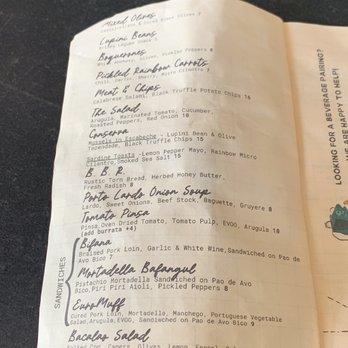 Mixed Olives
Lupini Beans
Boquerones
Pickled Peppers 8
Pickled Rainbow Carrots
Micro Cilantro 7
Meat & Chips
Calabrese Salami, Black Truffle Potato Chips 16
The Salad
Arugula, Marinated Tomato, Cucumber,
Roasted Peppers, Red Onion 10
Conserva
Mussels in Escabeche - Lupini Bean & Olive
Tapendade, Black Truffle Chips 15
Sardine Toasts - Lemon Pepper Mayo, Rainbow Micro
Cilantro, Smoked Sea Salt 15
B. B. R.
Rustic Torn Bread, Herbed Honey Butter,
Fresh Radish 8
Porto Lardo Onion Soup
Lardo, Sweet Onions, Beef Stock, Baguette, Gruyere 8
Tomato Pinsa
Pinsa; Oven Dried Tomato, Tomato Pulp, EVOO, Arugula 10
(add burrata +4)
SANDWICHES
Bifana
Braised Pork Loin, Garlic & White Wine, Sandwiched on Pao de
Avo Bico 7
Mortadella Bafangul
Pistachio Mortadella Sandwiched on Pao de Avo
Bico, Piri Piri Aioli, Pickled Peppers 8
EuroMuff
Cured Pork Loin, Mortadella, Manchego, Portuguese Vegetable
Salad, Arugula, EVOO, Sandwiched on Pao de Avo Bico 9
Bacalao Salad
LOOKING FOR A BEVERAGE PAIRING?
WE ARE HAPPY TO HELP!